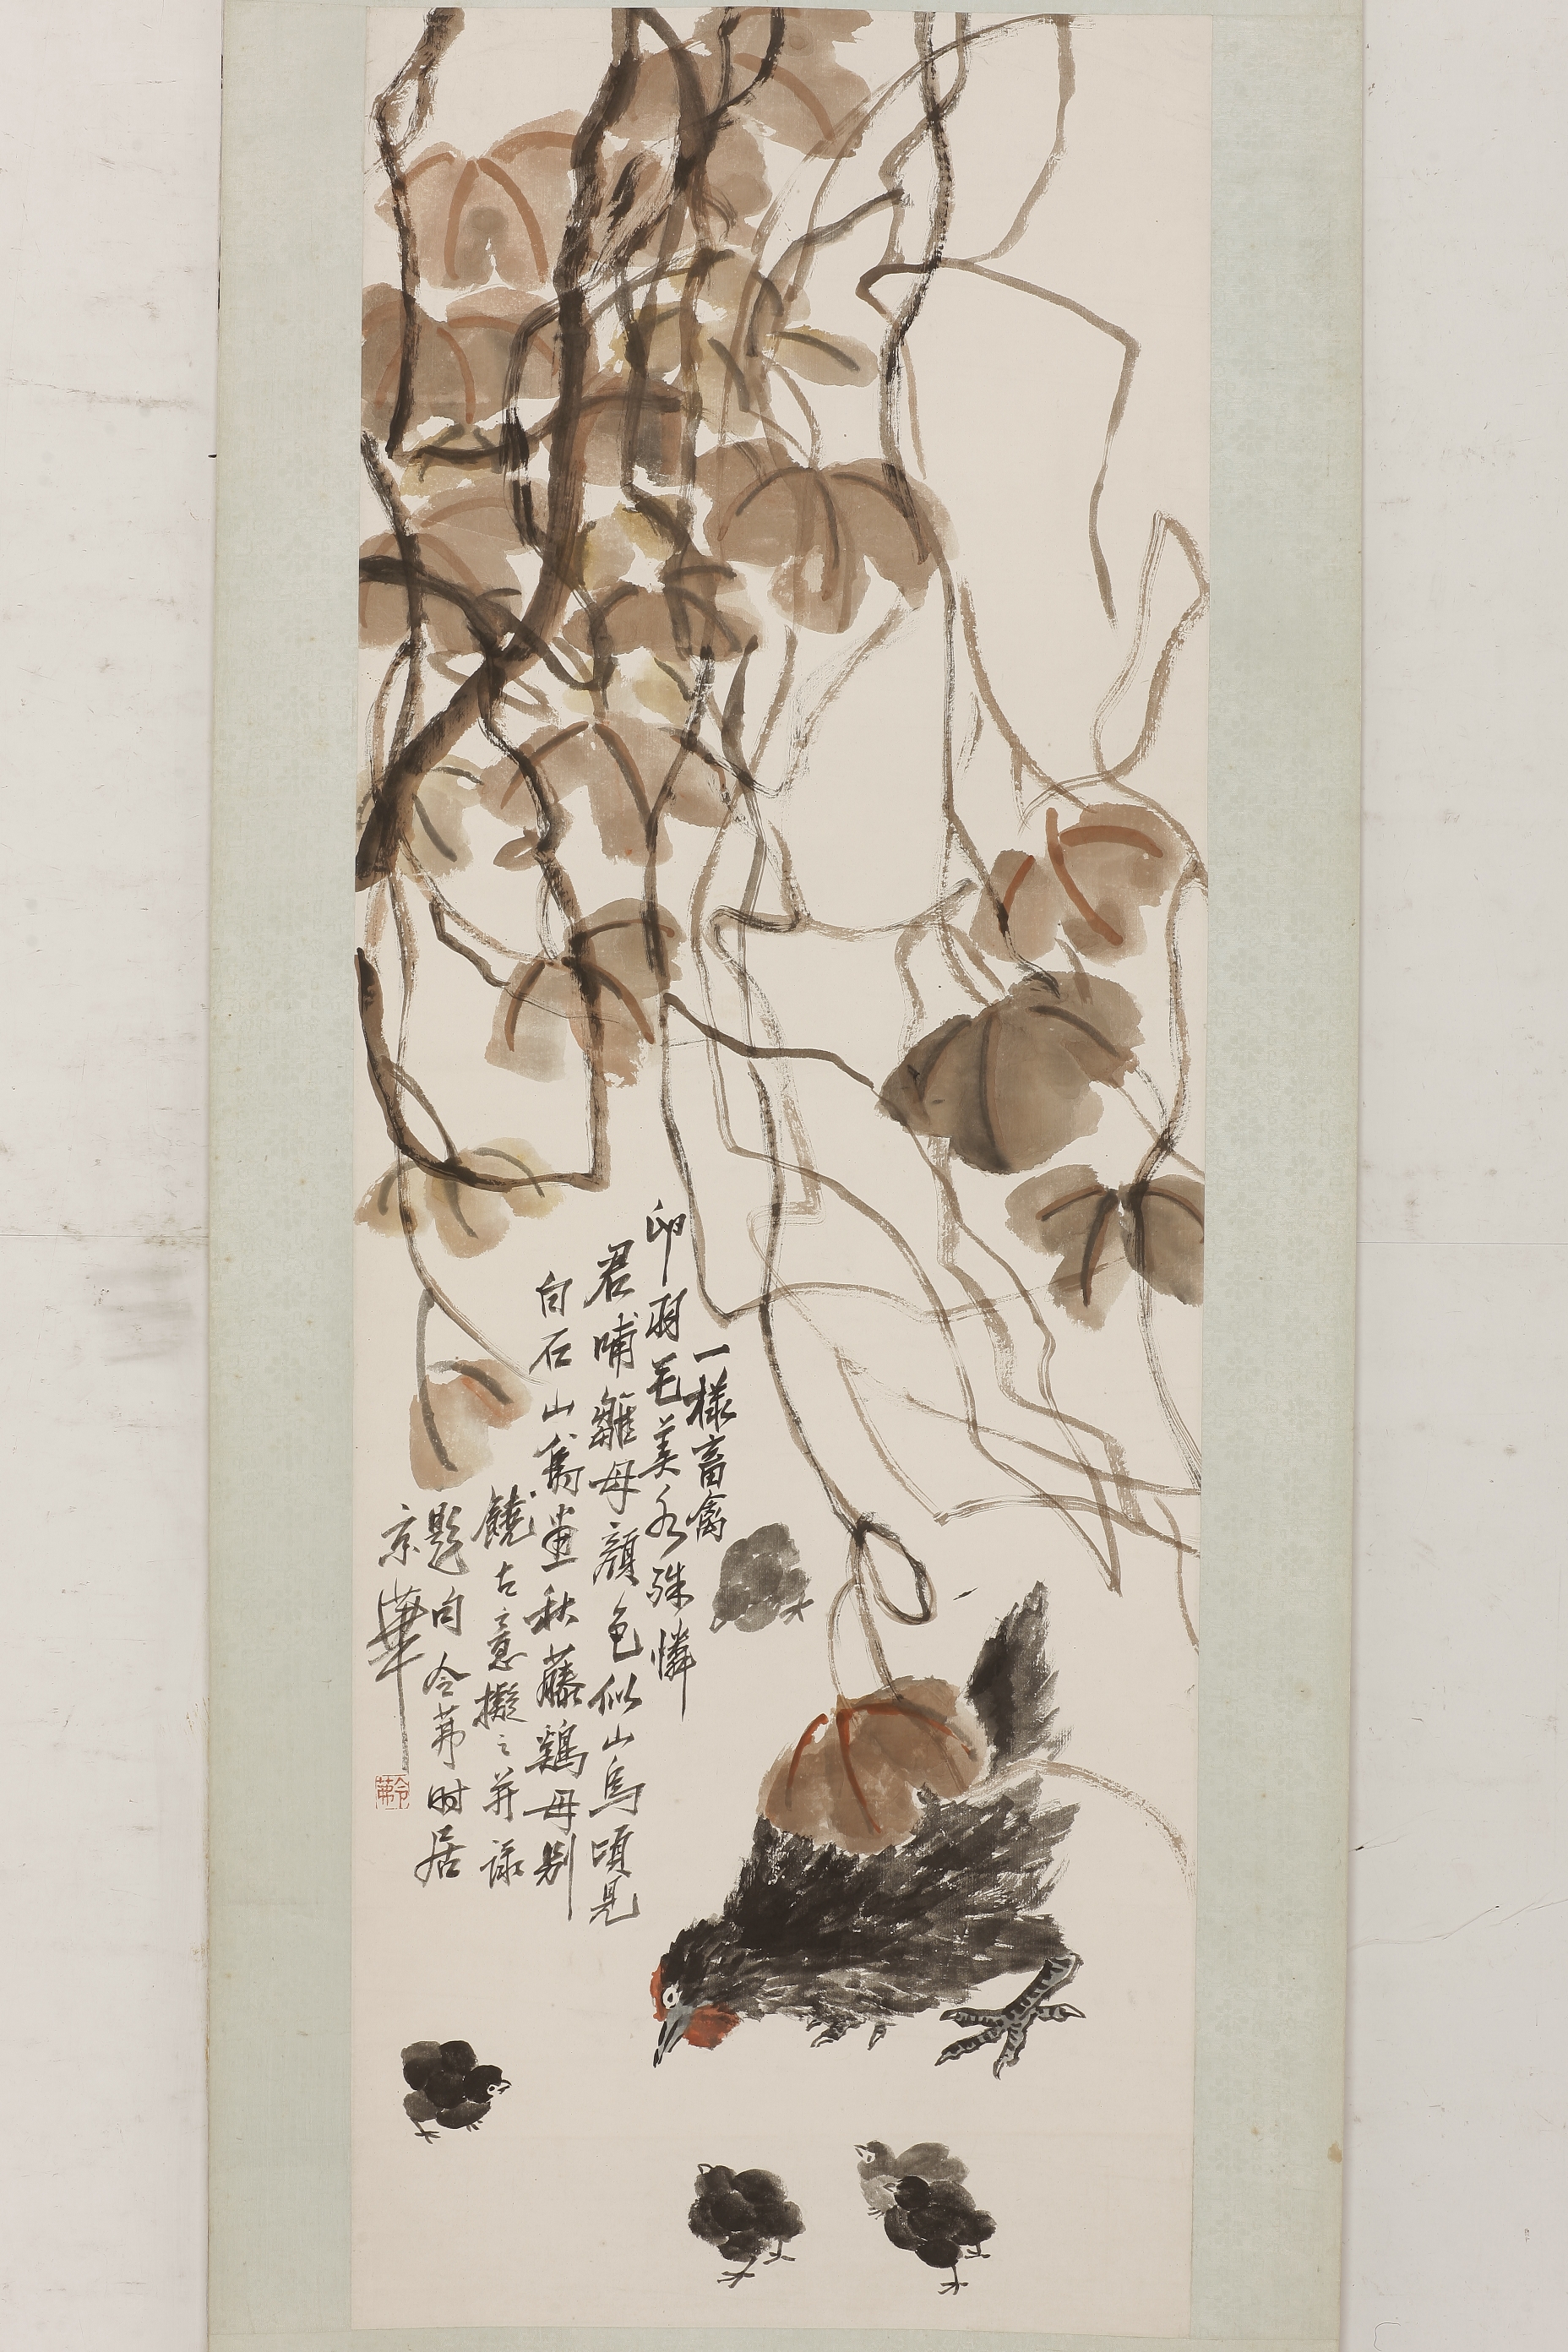 一樣畜禽
卵羽毛美不殊憐
君哺雛母顏色似山烏頃見
白石山翁畫秋藤鷄母別
饒古意擬之并錄
題句 令茀时居
京華
令茀